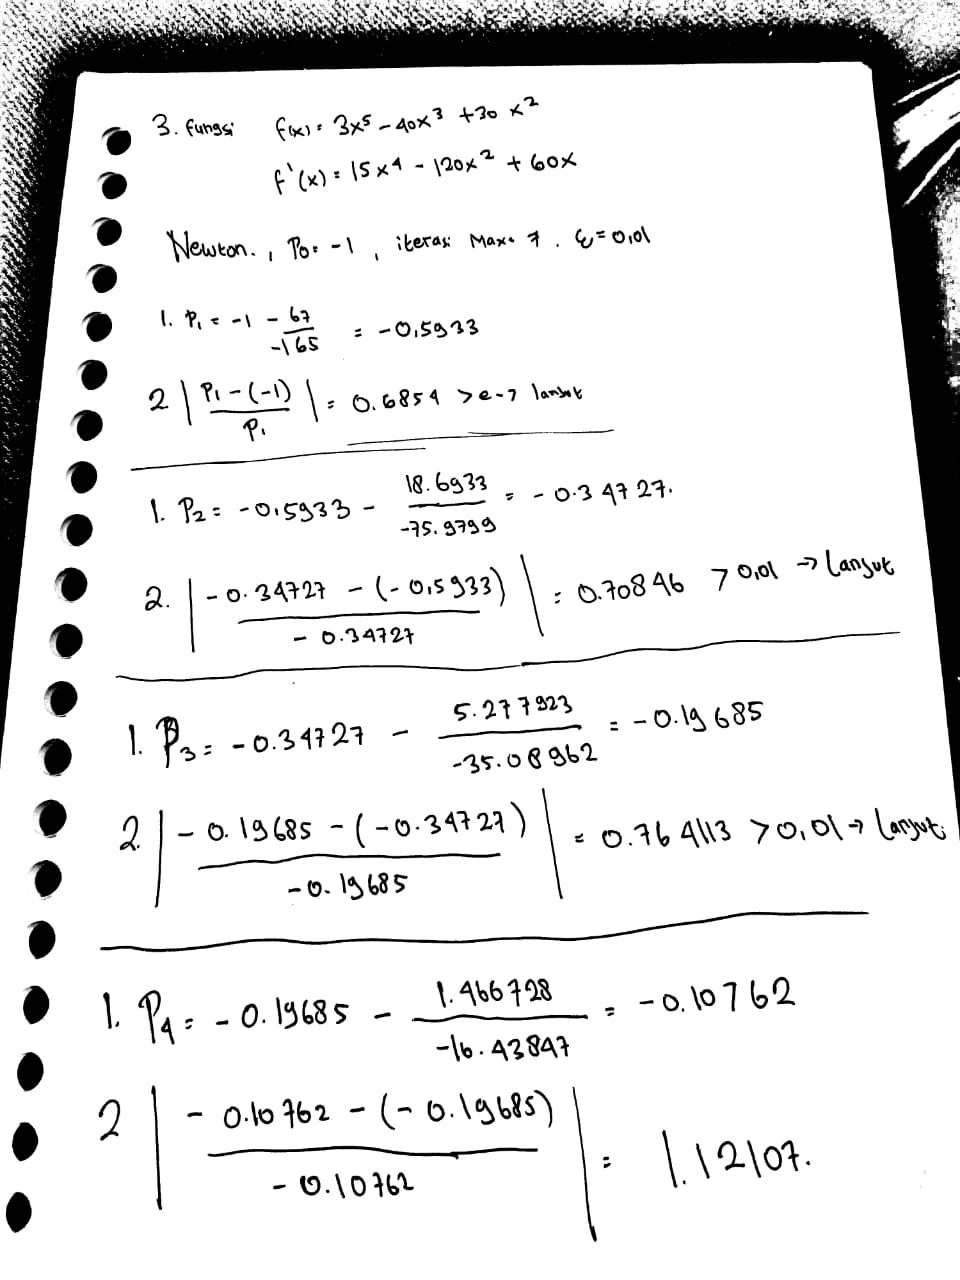 3. fungsi f(x) = 3x⁵ - 40x³ + 30x²
f'(x) = 15x⁴ - 120x² + 60x
Newton. , P0 = -1 , iterasi Max = 7 . ε = 0,01
1. P₁ = -1 - 67/-165 = -0,5933
2 | P₁-(-1) / P₁ | = 0.6854 > e → lanjut
1. P₂ = -0,5933 - 18.6933/-75.9799 = -0.34727.
2. | -0.34727 - (-0,5933) / -0.34727 | = 0.70846 > 0,01 → Lanjut
1. P₃ = -0.34727 - 5.277923/-35.08962 = -0.19685
2 | -0.19685 - (-0.34727) / -0.19685 | = 0.764113 > 0,01 → Lanjut.
1. P₄ = -0.19685 - 1.466728/-16.43847 = -0.10762
2 | -0.10762 - (-0.19685) / -0.10762 | = 1.12107.